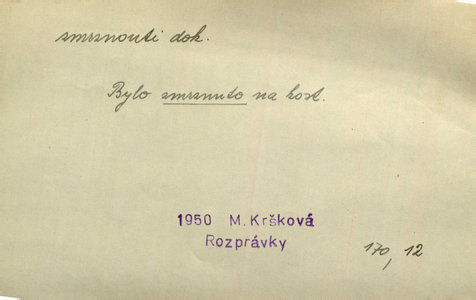 zmrznouti dok.
Bylo zmrznuto na kost.
1950 M. Kršková
Rozprávky
170, 12